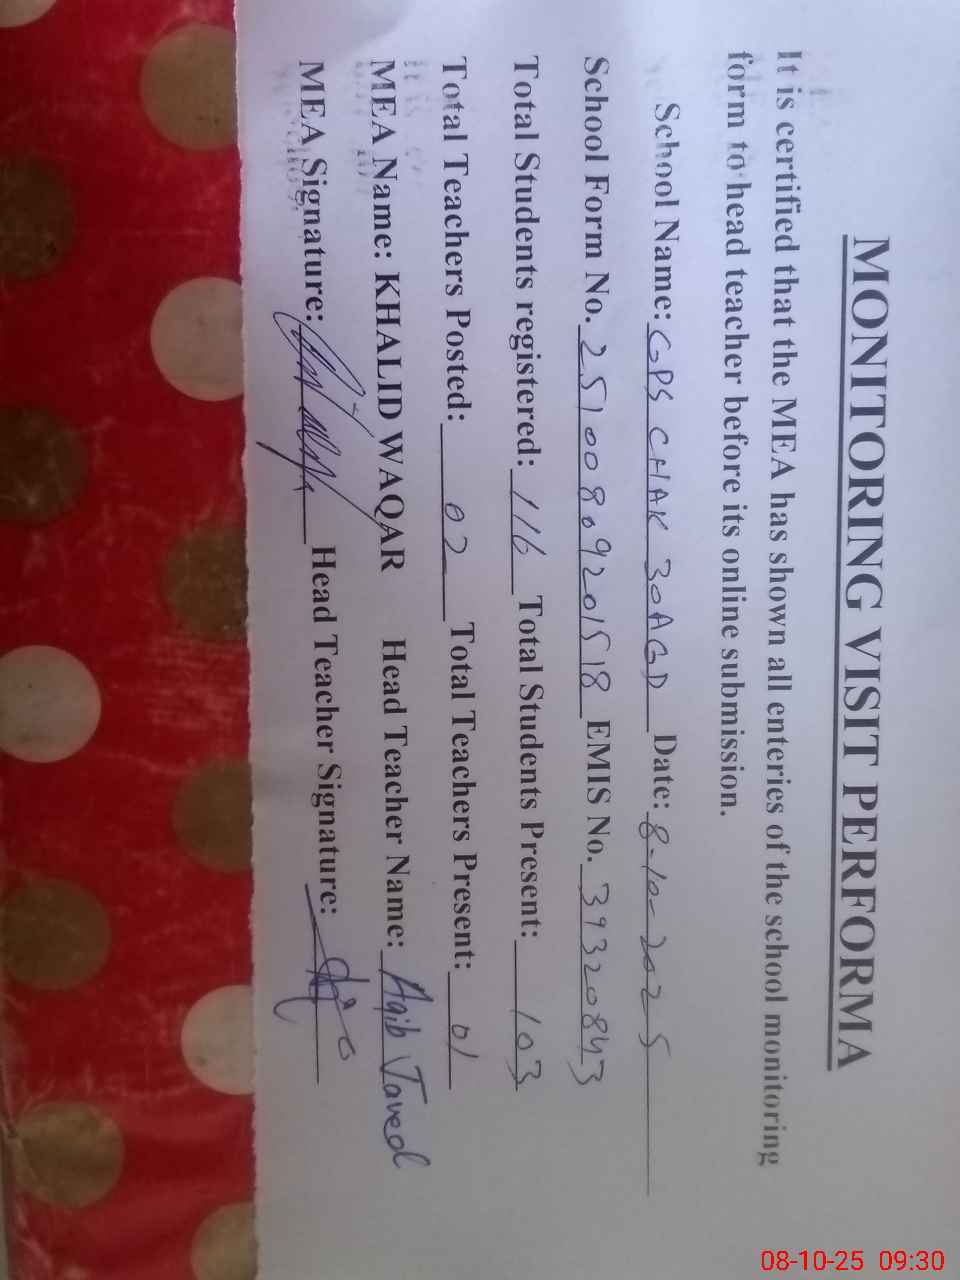 MONITORING VISIT PERFORMA
It is certified that the MEA has shown all enteries of the school monitoring
form to head teacher before its online submission.
School Name: GPS CHAK 30AGD Date: 8-10-2025
School Form No. 25100809201518 EMIS No. 39320843
Total Students registered: 116 Total Students Present: 103
Total Teachers Posted: 02 Total Teachers Present: 01
MEA Name: KHALID WAQAR Head Teacher Name: Aqib Javed
MEA Signature: Head Teacher Signature:
08-10-25 09:30